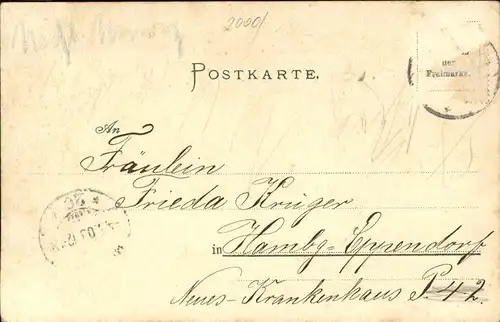 2000/
POSTKARTE.
der
Freimarke.
An
Fräulein
Frieda Krüger
in Hambg-Eppendorf
Neues-Krankenhaus P. 42